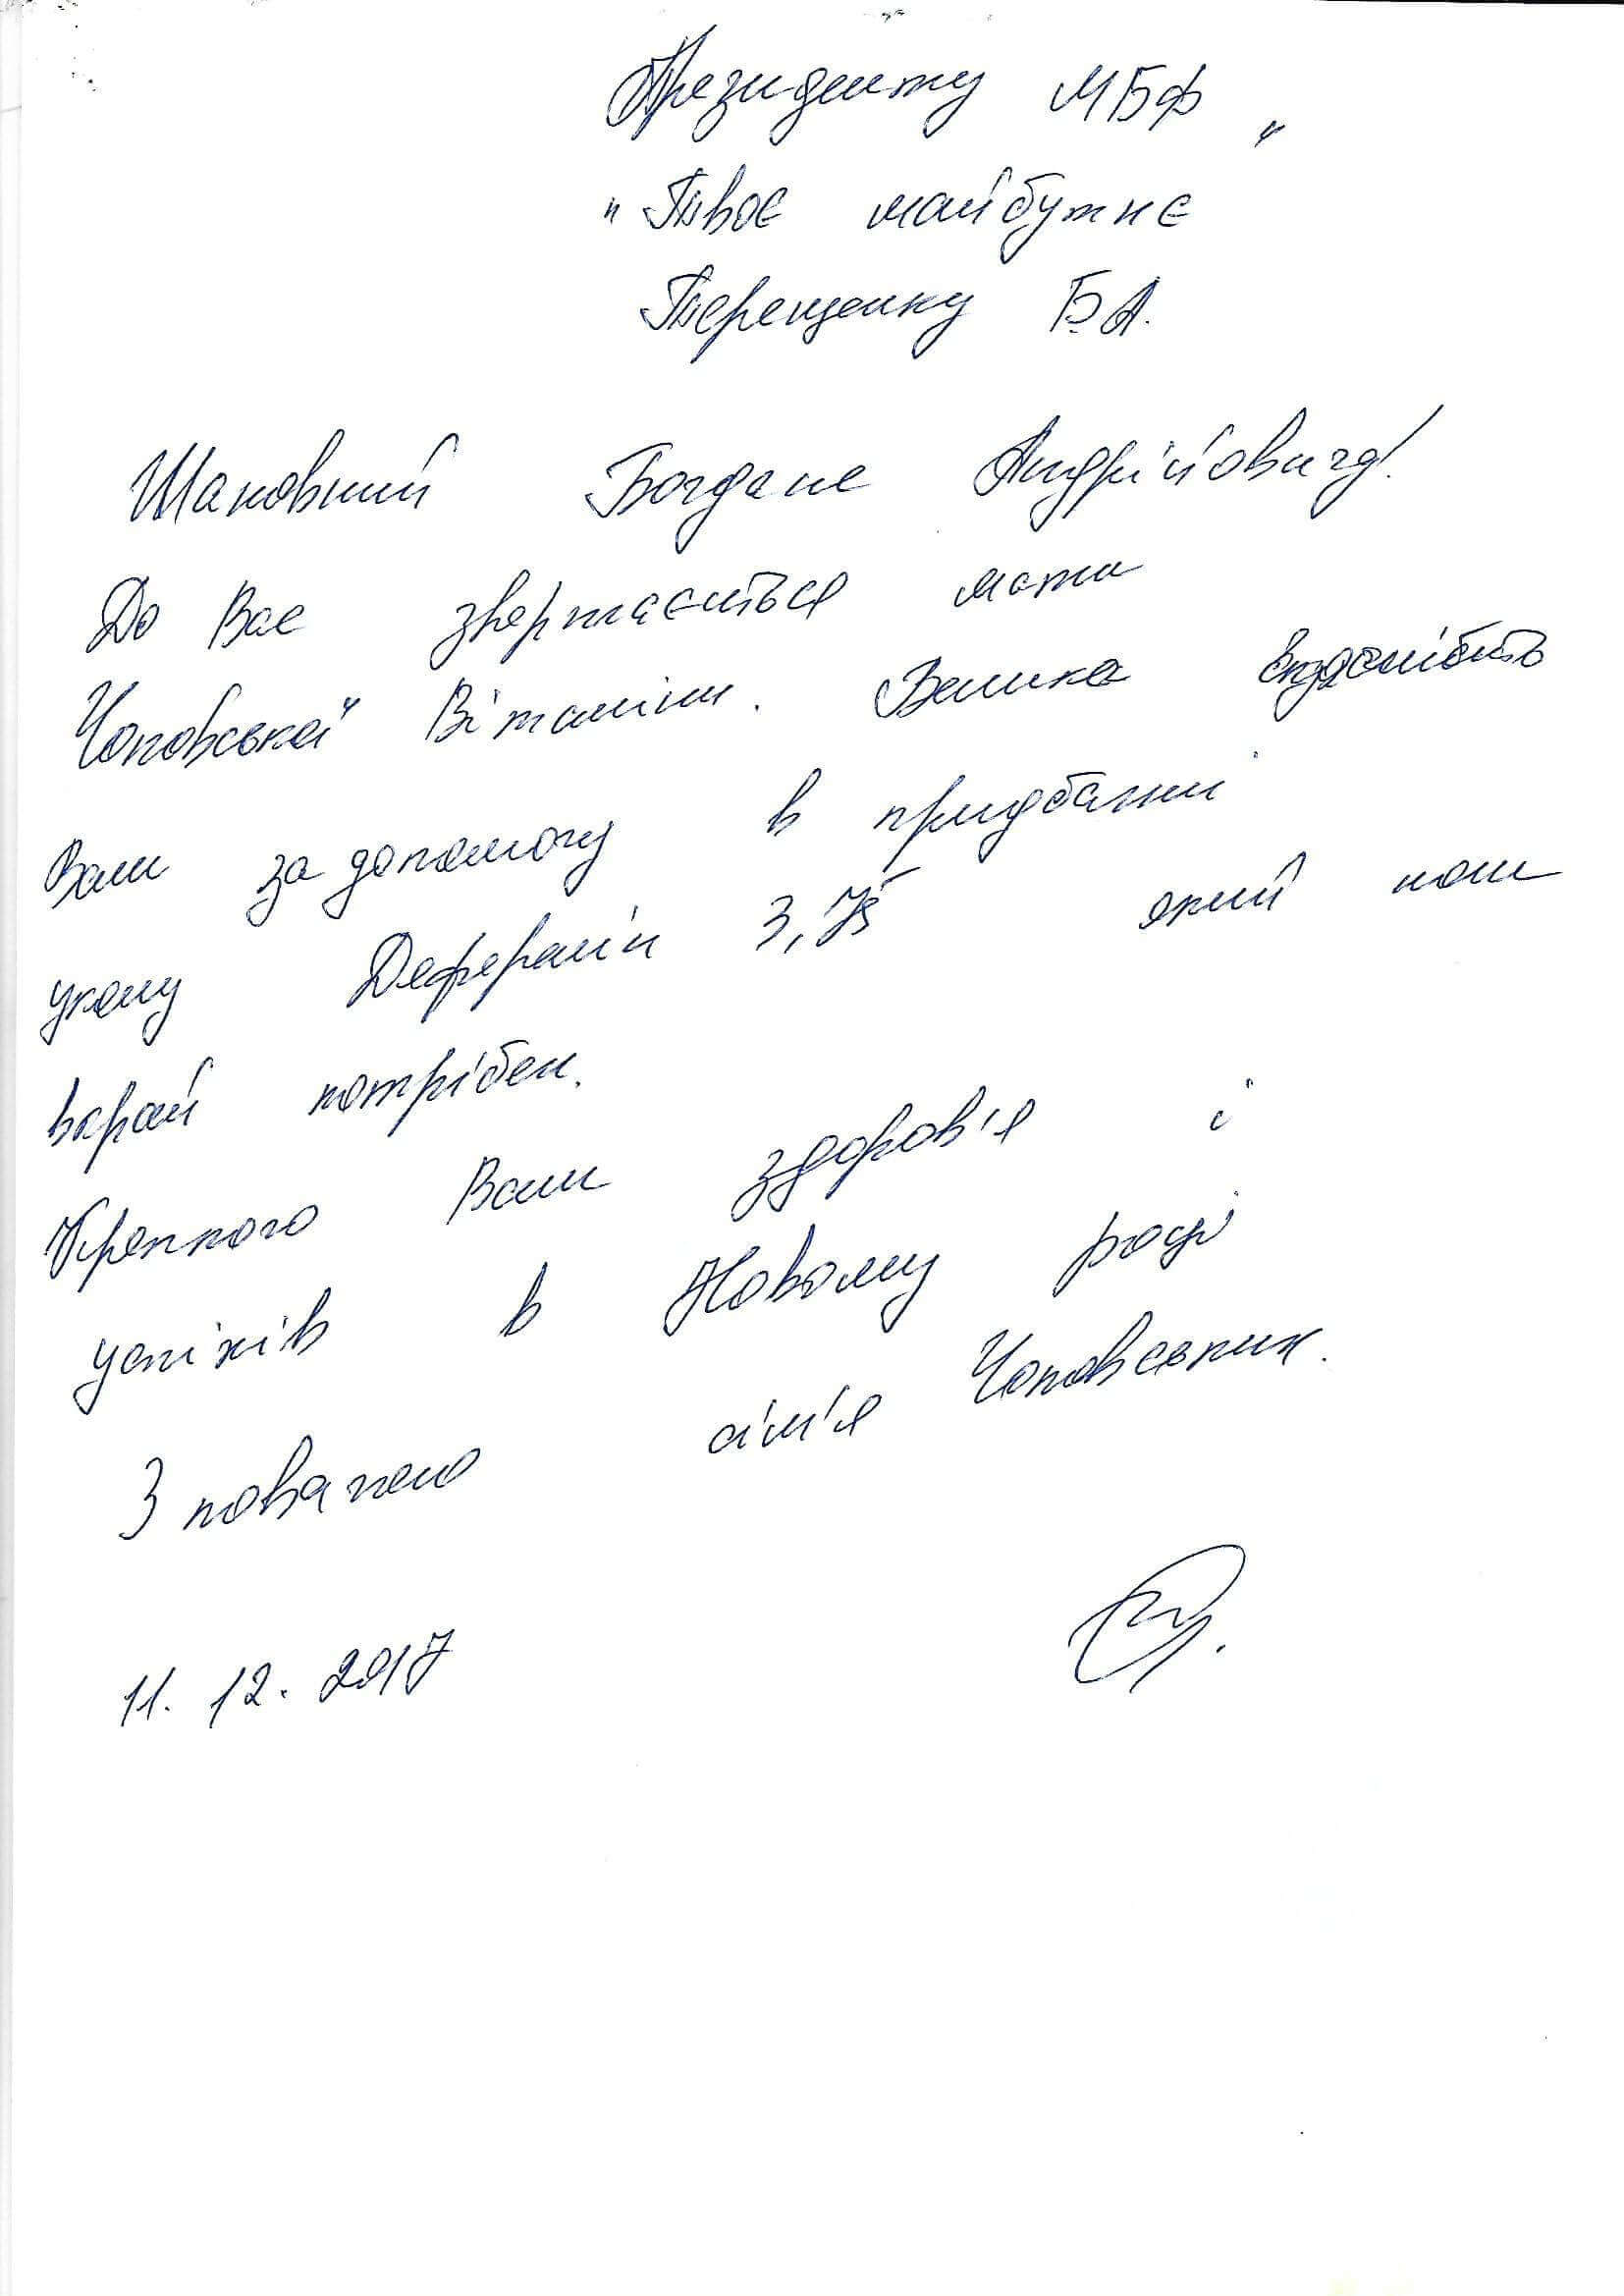 Президенту МБФ "
" Твоє майбутнє
Терещенку Б.А.
Шановний Богдане Андрійович!
До Вас звертається мати
Чоповської Віталіни. Велика вдячність
Вам за допомогу в придбанні
уколу Диферелін 3,75 який нам
вкрай потрібен.
Крепкого Вам здоров'я і
успіхів в Новому році
З повагою сім'я Чоповських.
11. 12. 2017